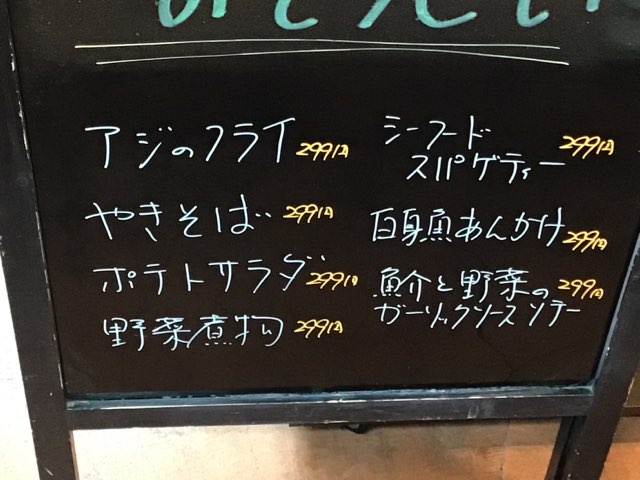 アジのフライ 299円
やきそば 299円
ポテトサラダ 299円
野菜煮物 299円
シーフード 299円
スパゲティー
白身魚あんかけ 299円
魚介と野菜の 299円
ガーリックソースソテー